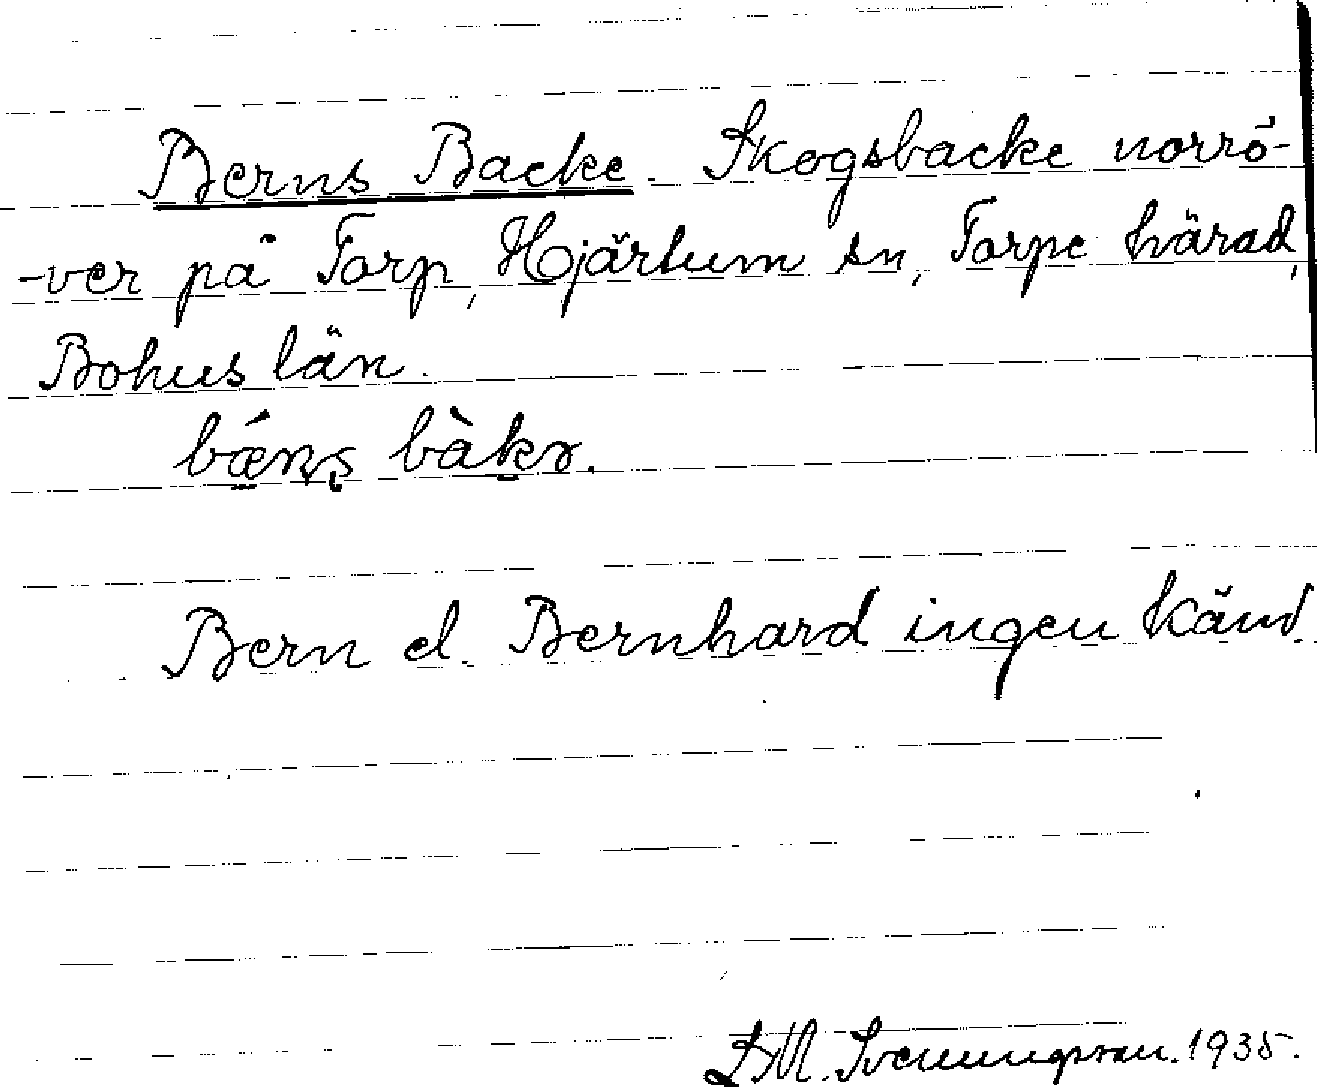 Berns Backe. Skogsbacke norrö-
-ver på Torp, Hjärtum sn, Torpe härad,
Bohus län.
bǽn̥s̥ bàkɘ.
Bern el. Bernhard ingen känd.
Svenungsson. 1935.